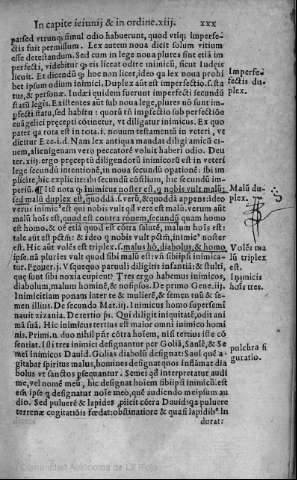 In capite ieiunij & in ordine.xiij. xxx
parsed vtrunqȝ simul odio habuerunt, quod vtiqȝ imperfe-
ctis fuit permissum. Lex autem noua dicit solum vitium
esse detestandum. Sed cum in lege noua plures sint etiā im
perfecti, videbitur qȝ eis liceat odire inimicū, sicut Iudeis
licuit. Et dicendū qȝ hoc non licet, ideo qa lex noua prohi
bet ipsum odium inimici. Duplex aūt est imperfectio. s. sta
tus, & personæ. Iudæi quidem fuerunt imperfecti secundū
statū legis. Existentes aūt sub noua lege, plures nō sunt im
Imperfe-
ctio du-
plex.
pfecti statu, sed habitu: quorū tñ imperfectio sub perfectiōe
euāgelici præcepti cōtinetur, vt diligatur inimicus. Ex quo
patet qa rota est in rota. i. nouum testamentū in veteri, vt
dicitur Eze. i. d. Nam lex antiqua mandat diligi amicū ci-
uem, alienigenam vero peccatorē voluit haberi odio. Deu
ter. xiij. ergo præceptū diligendorū inimicorū est in veteri
lege secundū intentionē, in noua secundū equationē: ibi im
plicite, hic explicite: ibi secundū cōsilium, hic secundū impe-
riū. ¶ Itē notā qȝ inimicus noster est, qȝ nobis vult malū:
sed malū duplex est, quoddā. s. verū, & quoddā apparēs: ideo
Malū du-
plex.
verus inimicᵒ est qui nobis vult qᵈ vere est malū. verum aūt
malū hoīs est, quod est contra ronem, secundū quam homo
est homo, & oē etiā quod est cōtra salutē, malum hoīs est:
tale aūt est pctm: & ideo qȝ nobis vult pctm, inimicᵒ noster
est. Hic aūt volēs est triplex. s. malus hō, diabolus, & homo
Volēs ma
lū triplex
est.
ipse. nā pluries vult quod sibi malū est: vñ sibiipsi inimica-
tur. Prouer. i. Vsquequo paruuli diligitis infantiā: & stulti,
quæ sunt sibi noxia cupient? Tres ergo habemus inimicos,
Inimicis
hoīs tres.
diabolum, malum hominē, & nosipsos. De primo Gene. iij.
Inimicitiam ponam inter te & mulierē, & semen tuū & se-
men illius. De secundo Mat. xij. Inimicus homo superfemi
nauit zizania. De tertio ps. Qui diligit iniquitatē, odit ani
mā suā. Hic inimicus tertius est maior omni inimico homi
nis. Primi. n. duo nihil pñt cōtra hoīem, nisi tertius iste cō
sentiat. Isti tres inimici designantur per Goliā, Saulē, & Se
mei inimicos Dauid. Golias diabolū designat: Saul quē a-
pulchra fi
guratio.
gitabat spiritus malus, homines designat quos instāmat dia
bolus vt sanctos psequantur. Semei qᵈ interpretatur audi
me, vel nomē meū, hic designat hoīem sibiipsi inimicū. est
est ipse qȝ designatur noīe meo, quē audiendo meipsum au
dio. Sed puluerē & lapides proiicit cōtra Dauid: qa puluere
terrenæ cogitatiōis fœdat: obstinatiore & quasi lapidibᵒ in
durat: